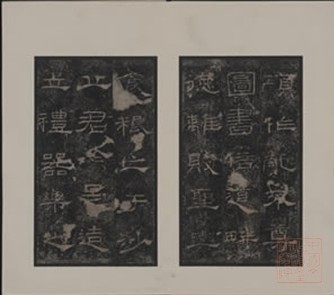 項作亂不尊
圖書倍道畔
德離敗聖輿
食糧亡于沙
丘君於是造
立禮器樂之